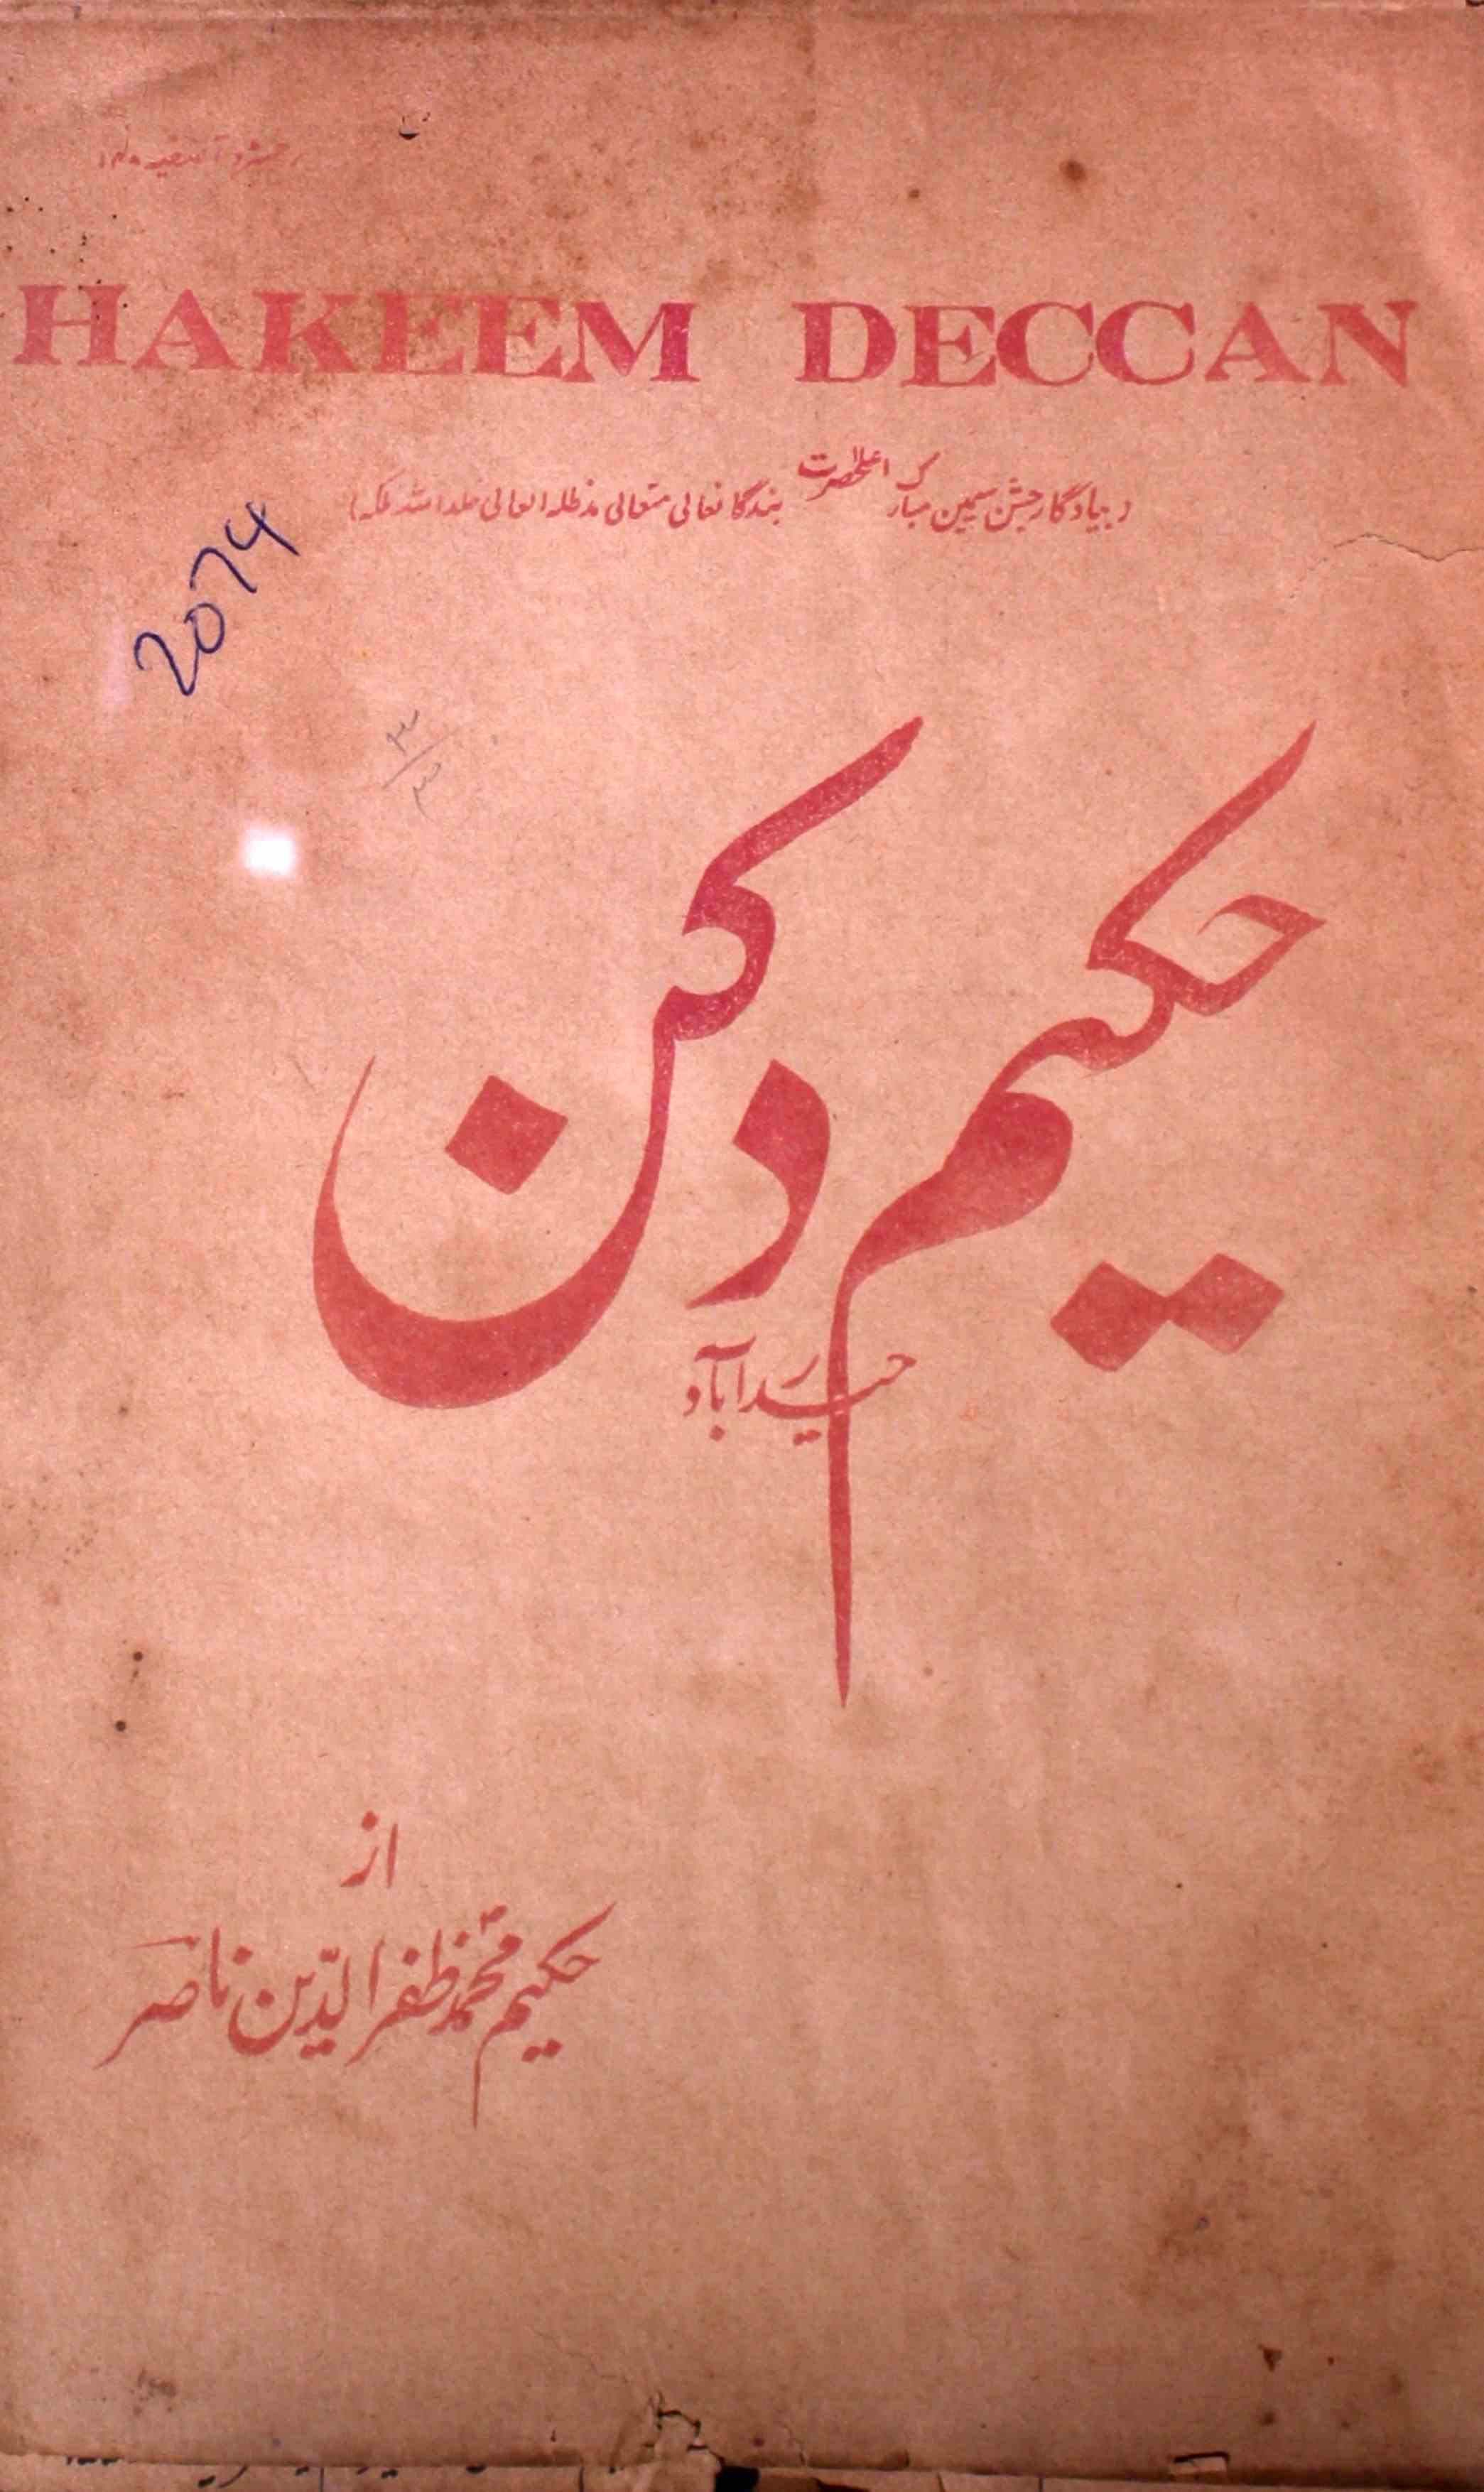 رجسٹرڈ آصفیہ ۱۴۸
HAKEEM DECCAN
(بیادگار جشن سیمین مبارک اعلحضرت بندگانعالی متعالی مدظلہ العالی خلد اللہ ملکہ)
2074
۳/۳
حکیم دکن
حیدرآباد
از
حکیم محمد ظفر الدین ناصر